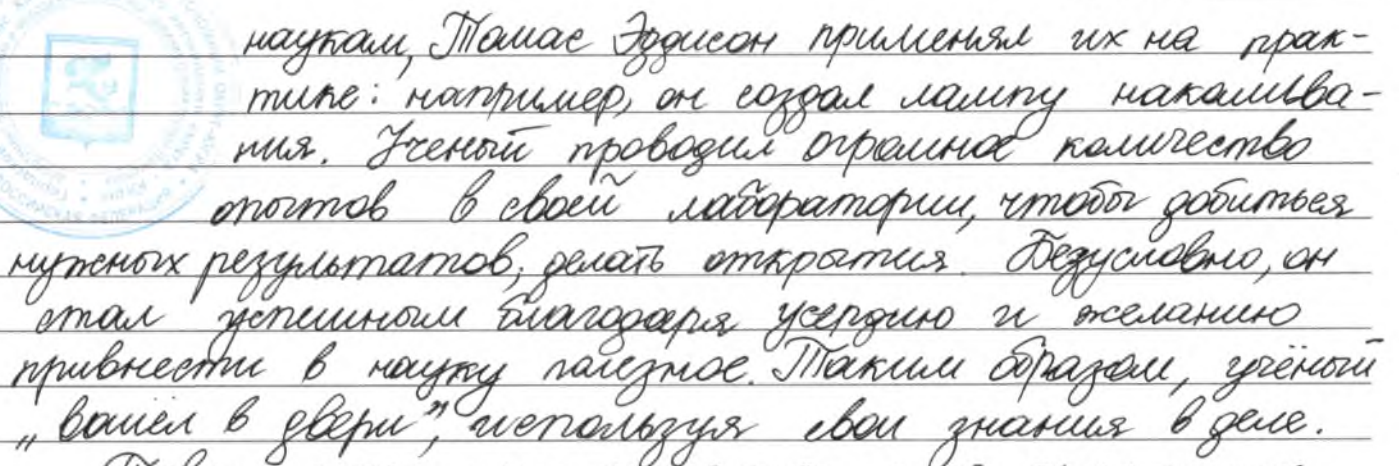 наукам, Томас Эддисон применял их на прак-
тике: например, он создал лампу накалива-
ния. Ученый проводил огромное количество
опытов в своей лаборатории, чтобы добиться
нужных результатов, делать открытия. Безусловно, он
стал успешным благодаря усердию и желанию
привнести в науку полезное. Таким образом, учёный
„вошёл в двери”, используя свои знания в деле.